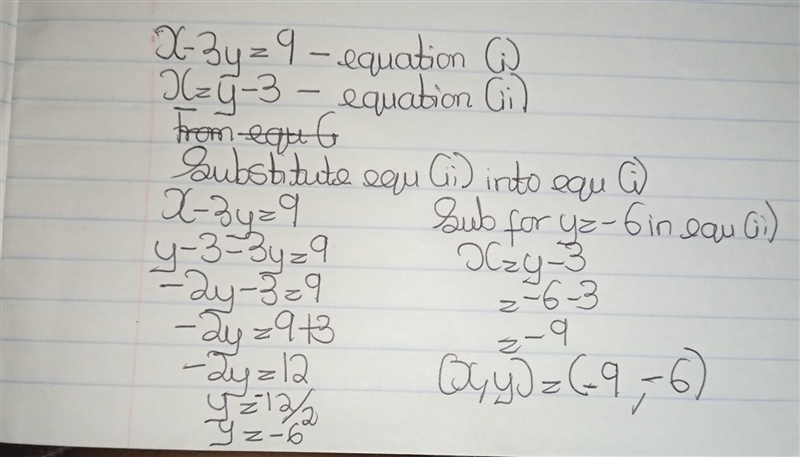 x-3y=9 - equation (i)
x=y-3 - equation (ii)
from equ (
Substitute equ (ii) into equ (i)
x-3y=9
y-3-3y=9
-2y-3=9
-2y=9+3
-2y=12
y=-12/2
y=-6
Sub for y=-6 in equ (ii)
x=y-3
=-6-3
=-9
(x,y)=(-9,-6)